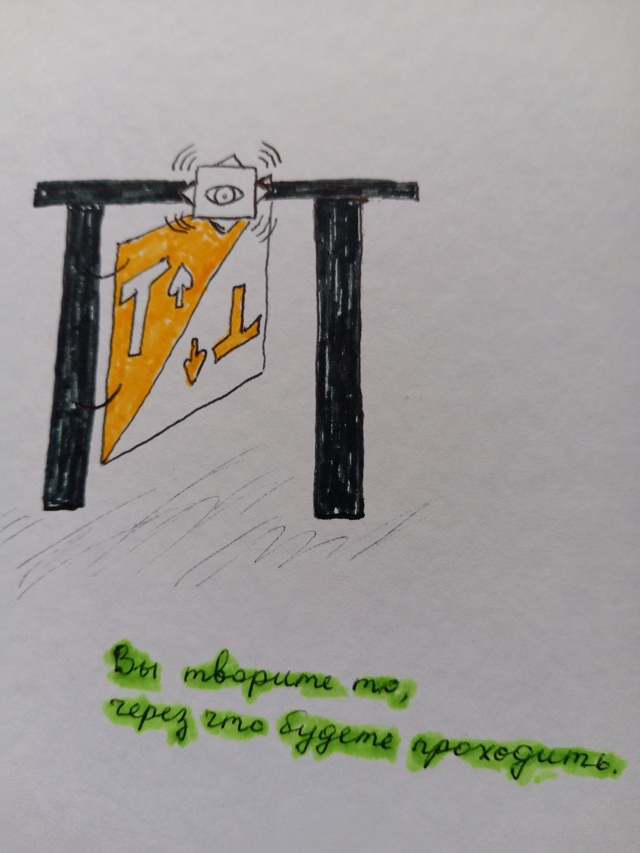 Т
Т
Вы творите то,
через что будете проходить.